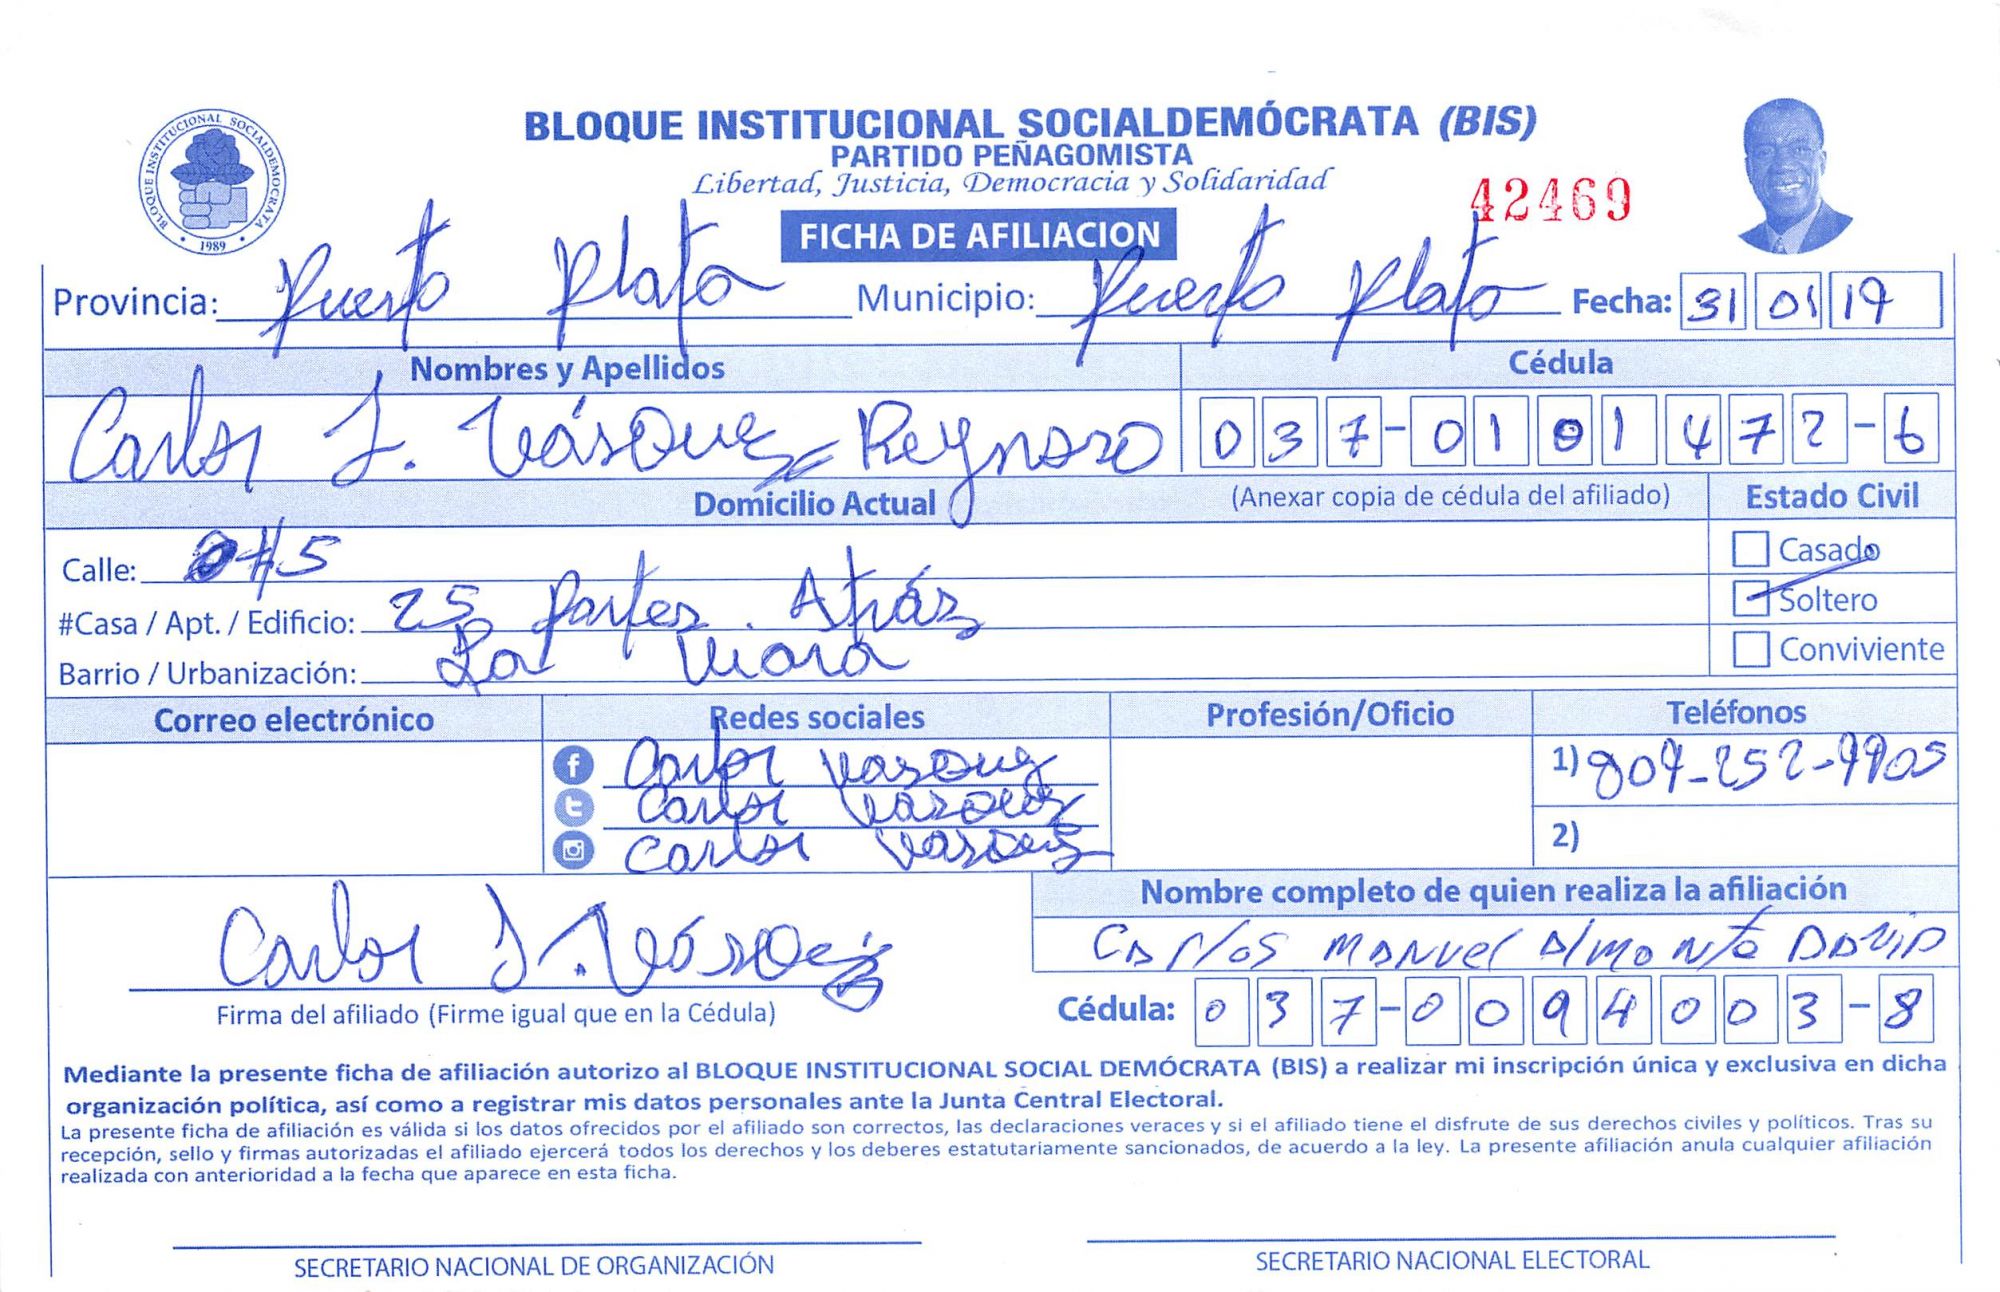 BLOQUE INSTITUCIONAL SOCIALDEMOCRATA
1989
BLOQUE INSTITUCIONAL SOCIALDEMÓCRATA (BIS)
PARTIDO PEÑAGOMISTA
Libertad, Justicia, Democracia y Solidaridad
42469
FICHA DE AFILIACION
Provincia: Puerto Plata Municipio: Puerto Plata Fecha: 31 01 19
Nombres y Apellidos Cédula
Carlos J. Vásquez Reynoso 037-0101472-6
Domicilio Actual (Anexar copia de cédula del afiliado) Estado Civil
Calle: #5 Casado
#Casa / Apt. / Edificio: 25 Partes Atrás Soltero
Barrio / Urbanización: La Conviviente
Correo electrónico Redes sociales Profesión/Oficio Teléfonos
Carlos Vasquez 1) 809-252-9905
Carlos Vasquez
Carlos Vasquez 2)
Nombre completo de quien realiza la afiliación
Carlos J. Vásquez Carlos Manuel Almonte David
Firma del afiliado (Firme igual que en la Cédula) Cédula: 037-0094003-8
Mediante la presente ficha de afiliación autorizo al BLOQUE INSTITUCIONAL SOCIAL DEMÓCRATA (BIS) a realizar mi inscripción única y exclusiva en dicha
organización política, así como a registrar mis datos personales ante la Junta Central Electoral.
La presente ficha de afiliación es válida si los datos ofrecidos por el afiliado son correctos, las declaraciones veraces y si el afiliado tiene el disfrute de sus derechos civiles y políticos. Tras su
recepción, sello y firmas autorizadas el afiliado ejercerá todos los derechos y los deberes estatutariamente sancionados, de acuerdo a la ley. La presente afiliación anula cualquier afiliación
realizada con anterioridad a la fecha que aparece en esta ficha.
SECRETARIO NACIONAL DE ORGANIZACIÓN SECRETARIO NACIONAL ELECTORAL